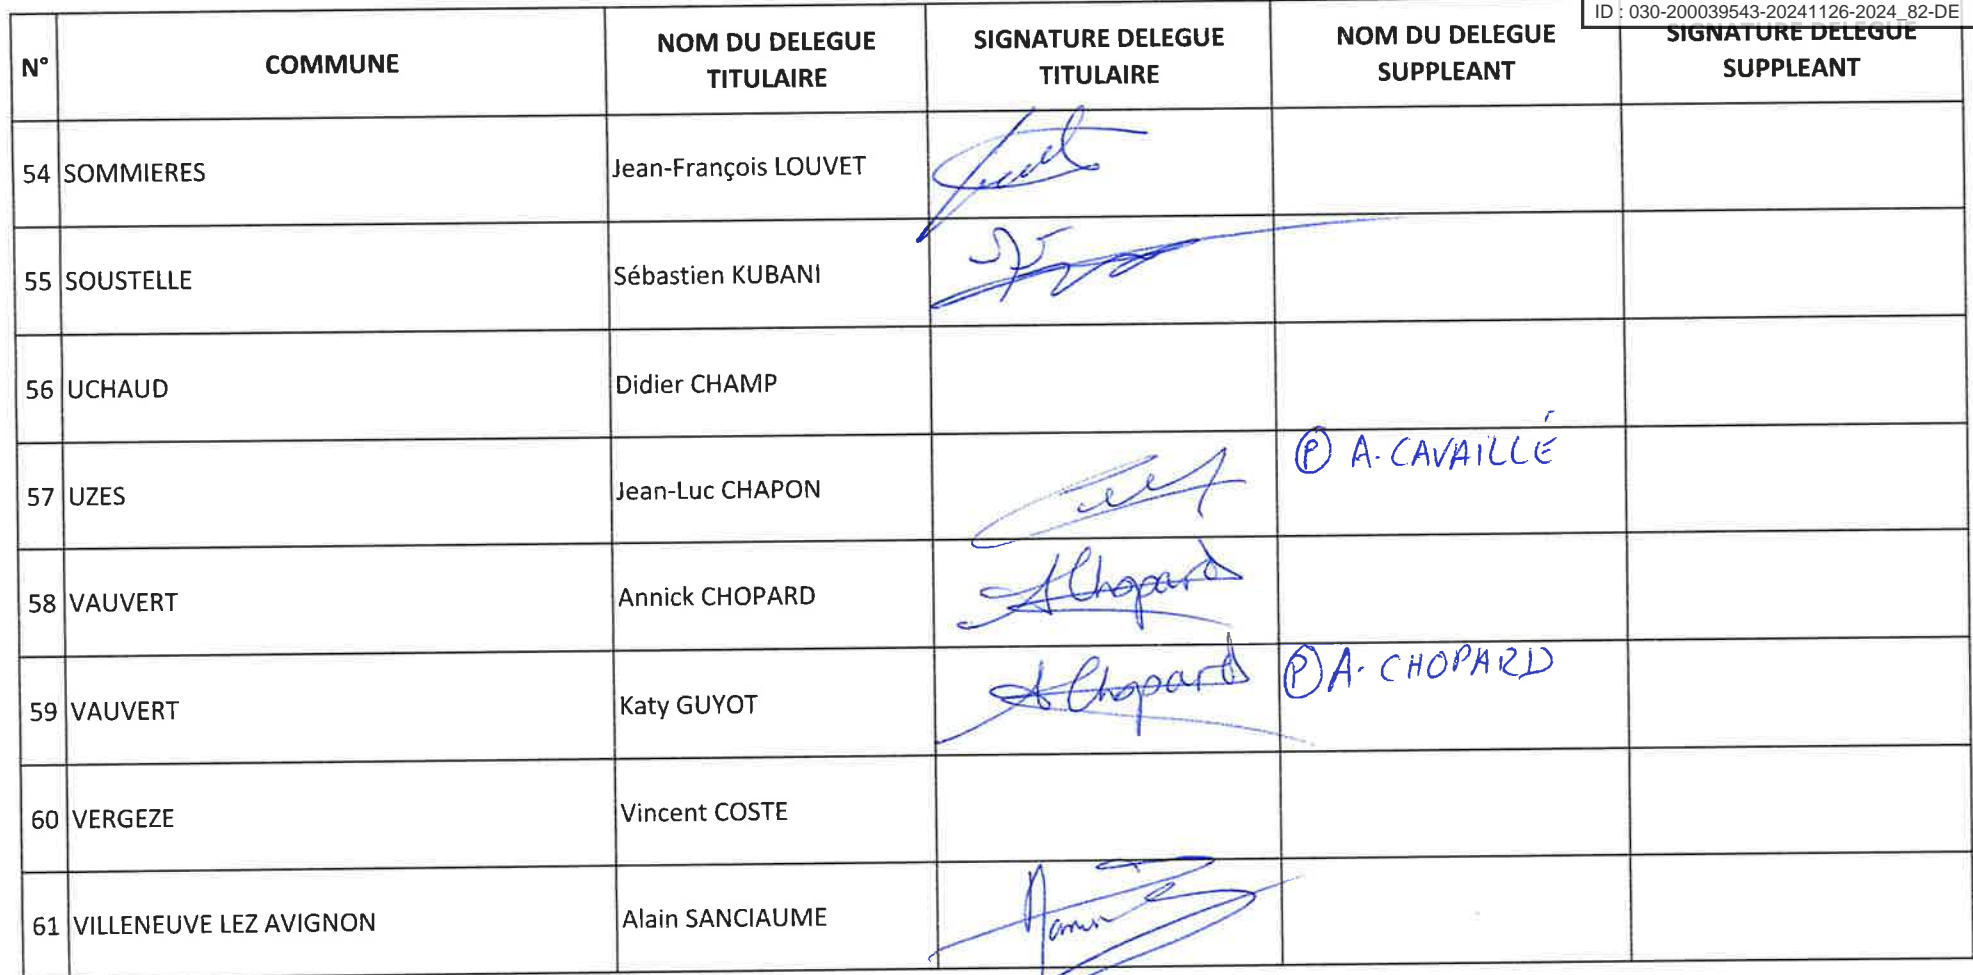 ID : 030-200039543-20241126-2024_82-DE
N° COMMUNE NOM DU DELEGUE TITULAIRE SIGNATURE DELEGUE TITULAIRE NOM DU DELEGUE SUPPLEANT SIGNATURE DELEGUE SUPPLEANT
54 SOMMIERES Jean-François LOUVET
55 SOUSTELLE Sébastien KUBANI
56 UCHAUD Didier CHAMP
57 UZES Jean-Luc CHAPON Ⓟ A. CAVAILLÉ
58 VAUVERT Annick CHOPARD AChopard
59 VAUVERT Katy GUYOT AChopard Ⓟ A. CHOPARD
60 VERGEZE Vincent COSTE
61 VILLENEUVE LEZ AVIGNON Alain SANCIAUME